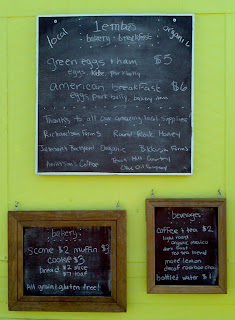 local Lemba's organic
bakery · breakfast
green eggs & ham $5
eggs, kale, pork belly
american breakfast $6
eggs, pork belly, bakery item
Thanks to all our amazing local suppliers
Richardson Farms Round Rock Honey
Johnson's Backyard Organic B&K Farms
Texas Hill Country
Anderson's Coffee Olive Oil Company
bakery
scone $2 muffin $3
cookie $3
bread $2 slice
$7 loaf
All grain/gluten free!
beverages
coffee & tea $2
light roast
organic mexico
dark roast
decaf
bottled water $1